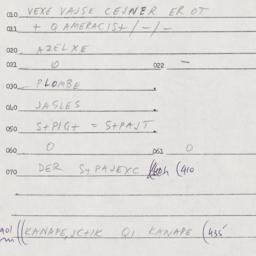 010 VEXE VAJSE CEJNER ER OT
011 + QAMERACIS+/-/-
020 AZELXE
021 0 022 -
030 PLOMBE
040 JASLES
050 S+PIG+ = S+PAJT
060 0 061 0
070 DER S+PAJEXC (410
((KANAPE,JC+IK QI KANAPE (435